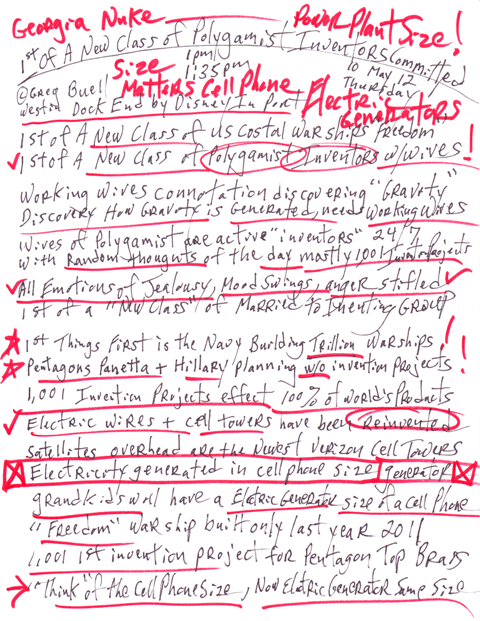 Georgia Nuke Power Plant Size!
1st of A New Class of Polygamist Inventors Committed
1pm 10 May 12
@Greg Buell Size 1:35pm Thursday
Matters Cell Phone Electric Generators
Westin Dock End by Disney In Port
1st of A New Class of US Costal Warships "Freedom"
1st of A New Class of Polygamist Inventors w/wives!
Working wives connotation discovering "Gravity"
Discovery How Gravity is Generated, needs Working Wives
Wives of Polygamist are active "inventors" 24/7
with Random thoughts of the day mostly 1,001 Invention Projects
All Emotions of Jealousy, Mood Swings, anger stifled
1st of a "New Class" of Married to Inventing Group
1st Things First is the Navy Building Trillion Warships!
Pentagons Panetta + Hillary planning w/o invention projects!
1,001 Invention Projects effect 100% of World's Products
Electric wires + cell towers have been Reinvented
Satellites overhead are the Newest Verizon Cell Towers
Electricity generated in cell phone size generator
grandkids will have a Electric Generator size of a Cell Phone
"Freedom" warship built only last year 2011
1,001 1st invention project for Pentagon Top Brass
"Think" of the Cell Phone Size, Now Electric Generator Same Size